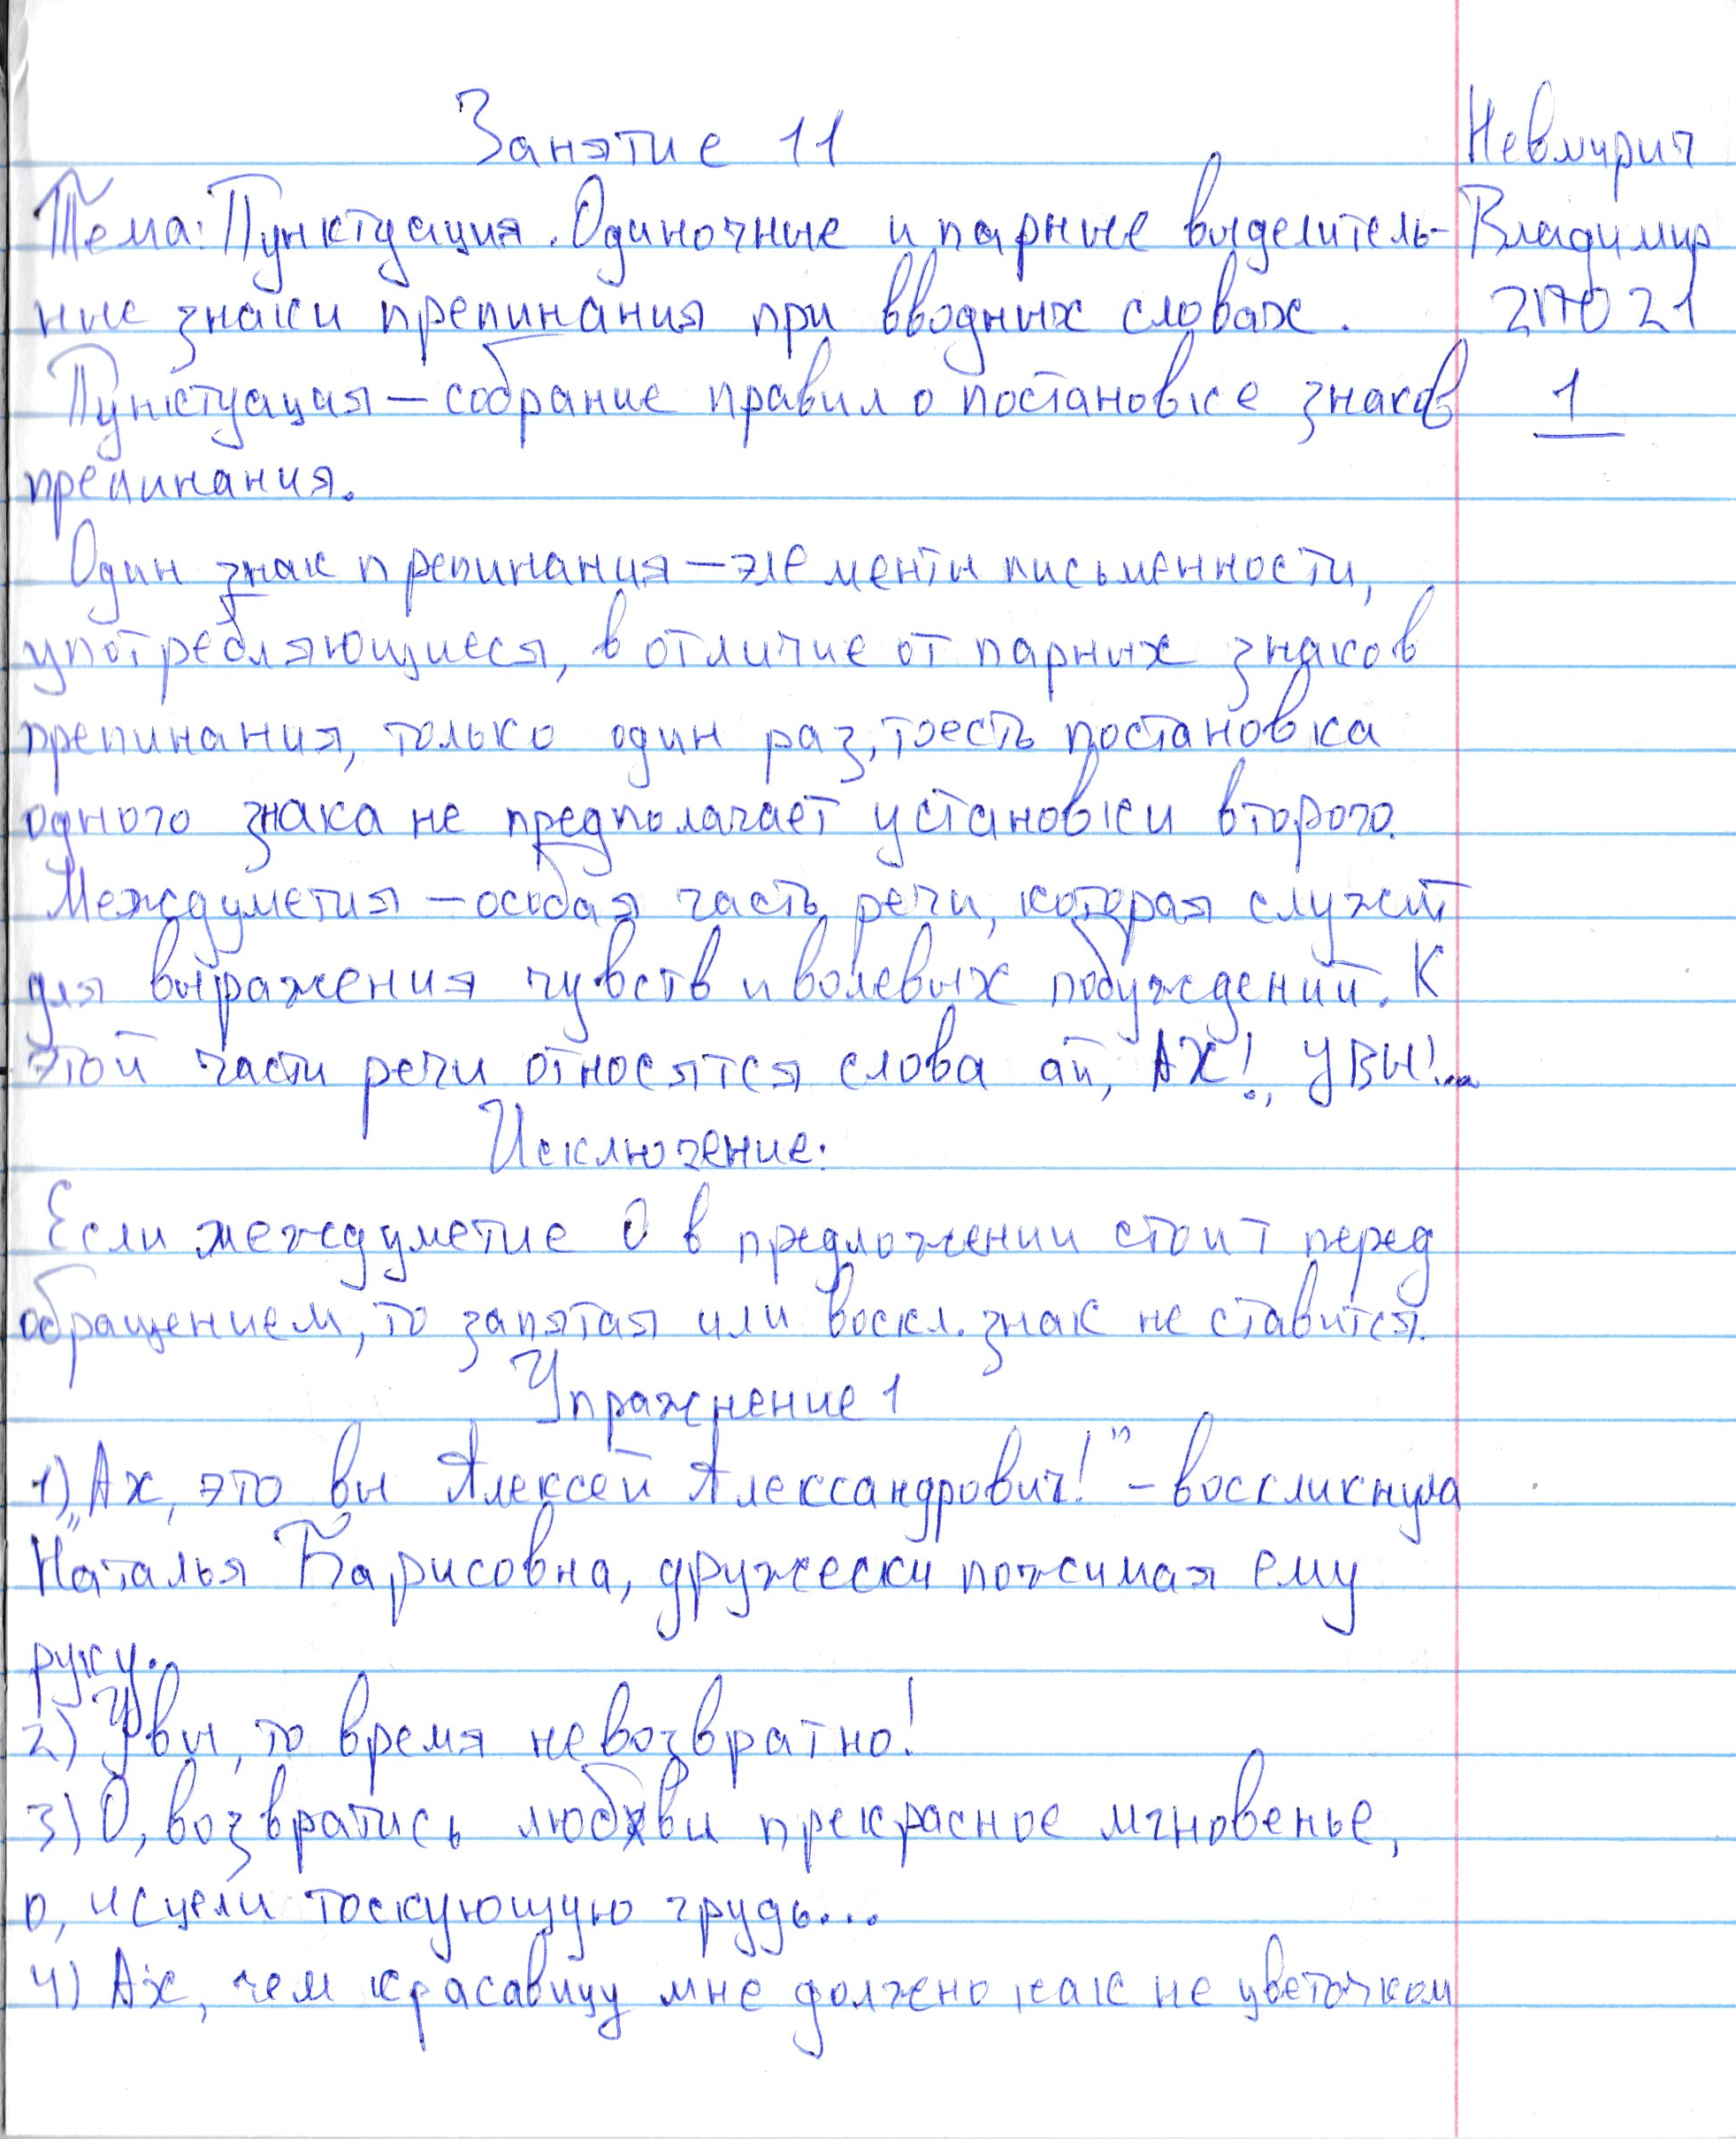 Занятие 11
Невмирич
Тема: Пунктуация. Одиночные и парные выделитель-
Владимир
ные знаки препинания при вводных словах.
2ПО21
Пунктуация — собрание правил о постановке знаков
1
препинания.
Один знак препинания — элементы письменности,
употребляющиеся, в отличие от парных знаков
препинания, только один раз, тоесть постановка
одного знака не предполагает установки второго.
Междуметия — особая часть речи, которая служит
для выражения чувств и волевых побуждений. К
этой части речи относятся слова ай, АХ!, УВЫ!...
Исключение:
Если междуметие О в предложении стоит перед
обращением, то запятая или воскл. знак не ставится.
Упражнение 1
1) „Ах, это вы Алексей Александрович!” - воскликнула
Наталья Барисовна, дружески пожимая ему
руку.
2) Увы, то время невозвратно!
3) О, возвратись любви прекрасное мгновенье,
о, исцели тоскующую грудь...
4) Ах, чем красавицу мне должно, как не цветочком